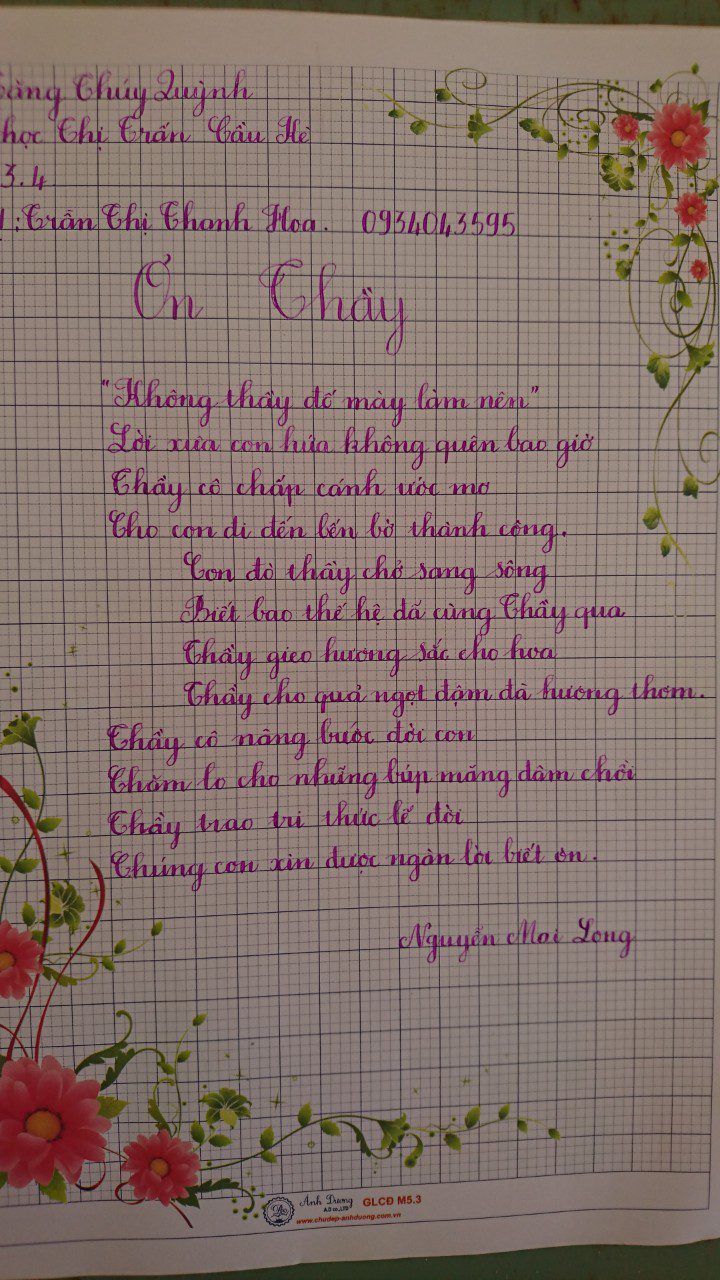 ăng Thúy Quỳnh
học Thị Trấn Cầu Kè
3.4
: Trần Thị Thanh Hoa. 0934043595
Ơn Thầy
"Không thầy đố mày làm nên"
Lời xưa con hứa không quên bao giờ
Thầy cô chấp cánh ước mơ
Cho con đi đến bến bờ thành công.
Con đò thầy chở sang sông
Biết bao thế hệ đã cùng Thầy qua
Thầy gieo hương sắc cho hoa
Thầy cho quả ngọt đậm đà hương thơm.
Thầy cô nâng bước đời con
Chăm lo cho những búp măng đâm chồi
Thầy trao tri thức lẽ đời
Chúng con xin được ngàn lời biết ơn.
Nguyễn Mai Long
Ánh Dương
A.D co.,LTD
GLCĐ M5.3
www.chudep-anhduong.com.vn